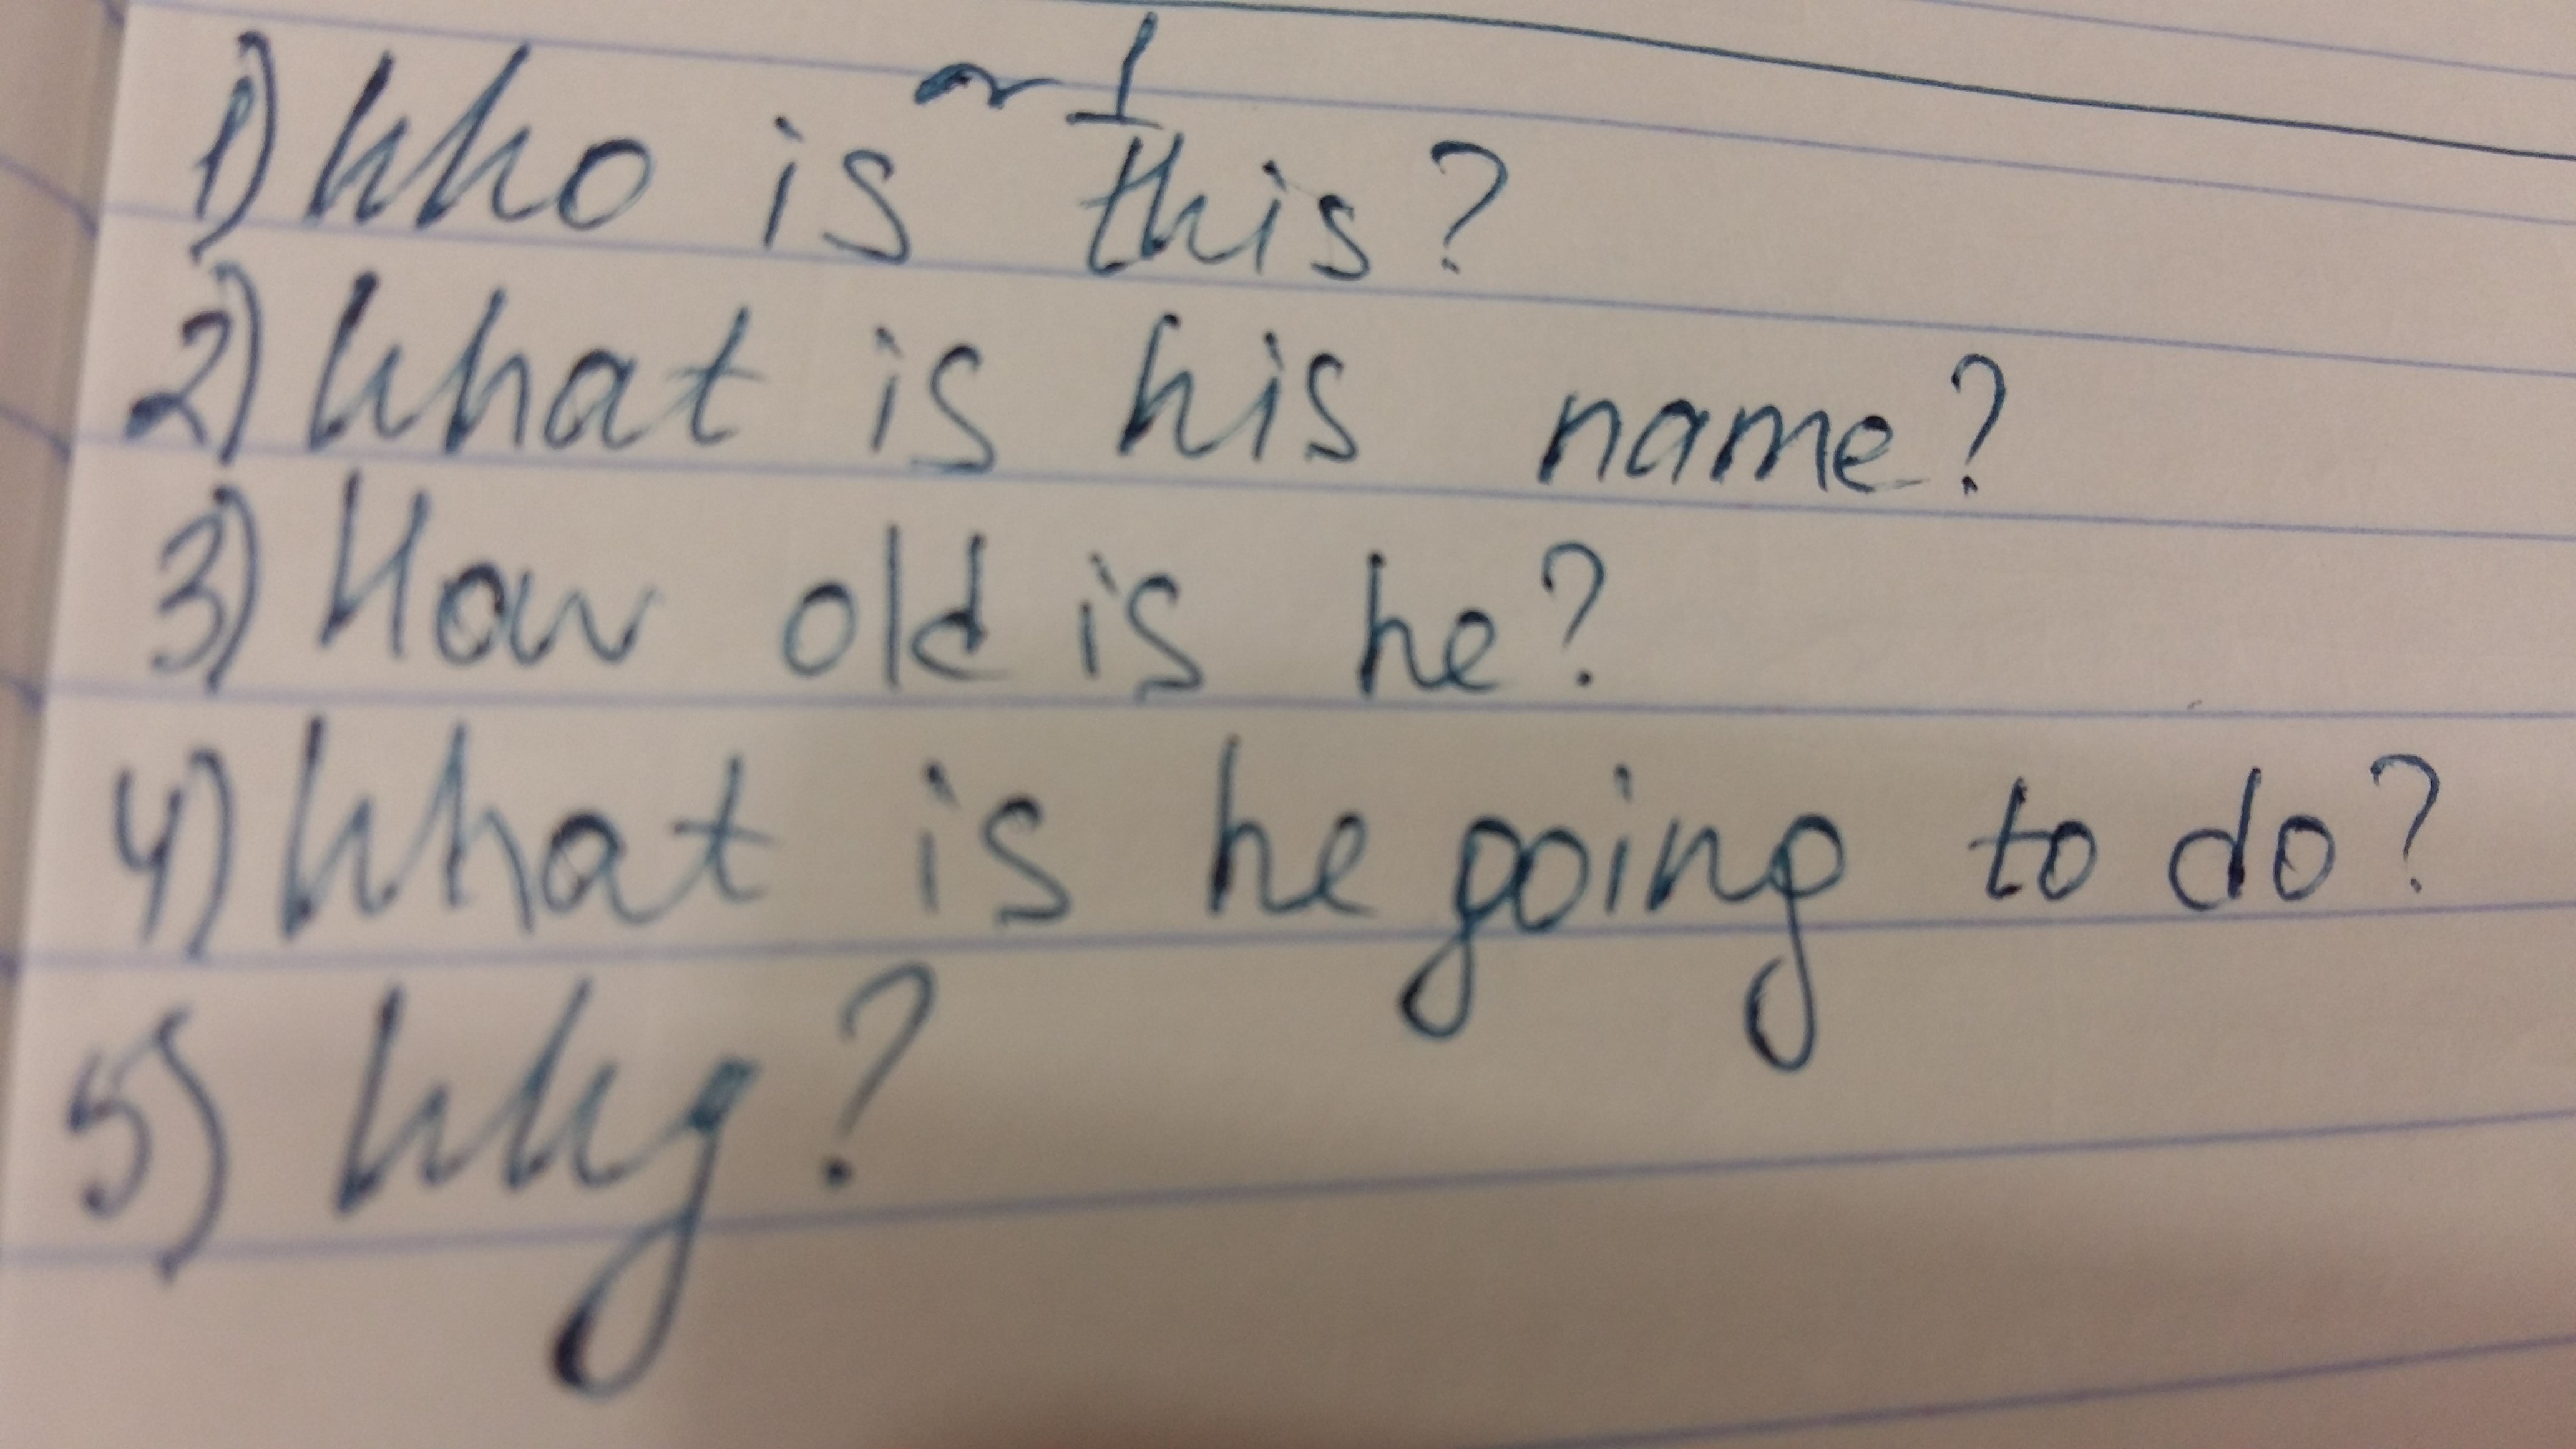 1) Who is this?
2) What is his name?
3) How old is he?
4) What is he going to do?
5) Why?